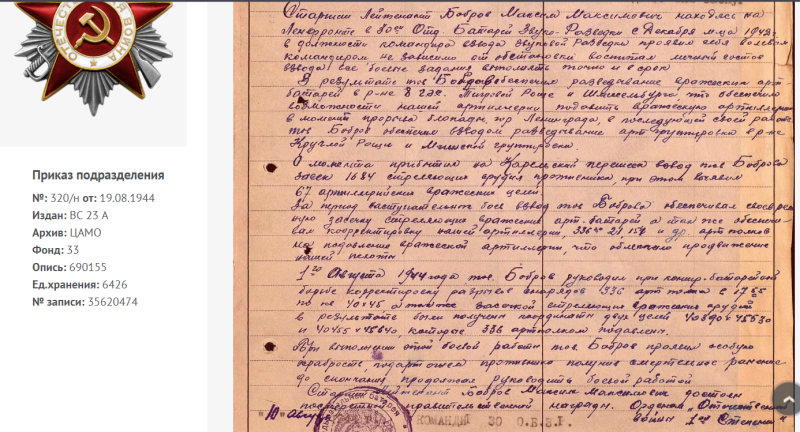 ОТЕЧЕСТВЕННАЯ ВОЙНА
Приказ подразделения
№: 320/н от: 19.08.1944
Издан: ВС 23 А
Архив: ЦАМО
Фонд: 33
Опись: 690155
Ед.хранения: 6426
№ записи: 35620474
Старший Лейтенант Бобров Максим Максимович находясь на
Ленфронте в Отд. Батарей Звуко-Разведки с Декабря м-ца 1942г.
в должности командира взвода звуковой Разведки проявил себя волевым
командиром не зависимо от обстановки воспитал личный состав
взвода все боевые задания выполнять точно и в срок
В результате тов Бобров обеспечил разведывание вражеских арт
батарей в р-не 8 ГЭС. Роще и Шлиссельбурга что обеспечило
возможность нашей артиллерии подавить вражескую артиллерию
в момент прорыва блокады гор Ленинграда, в последующей своей работе
тов Бобров обеспечил взводом разведывание арт группировки в р-не
Круглой Рощи и Мгинской группировки.
С момента прибытия на Карельский перешеек взвод тов Боброва
засек 1684 стреляющих орудия противника, при этом
67 артиллерийских вражеских целей
За период наступательных боев взвод тов Боброва обеспечивал своевремен
ную засечку стреляющих вражеских арт. батарей а так же обеспечи
вал корректировку нашей артиллерии, 336ой и др. арт полков
на подавление вражеской артиллерии, что облегчило продвижение
нашей пехоты
1го Августа 1944 года тов. Бобров руководил при контр-батарейной
борьбе корректировку разрывов снарядов 336 арт полка
по а также засечкой стреляющих вражеских орудий
в результате были получены координаты двух целей
и которые 336 артполком подавлены.
При выполнении этой боевой работы тов. Бобров проявил особую
храбрость, противника получив смертельное ранение
до скончания продолжал руководить боевой работой
Старший Лейтенант Бобров Максим Максимович достоин
посмертно правительственной награды. Орденом „Отечественной
Войны 1ой Степени"
"10" август
КОМАНДИР